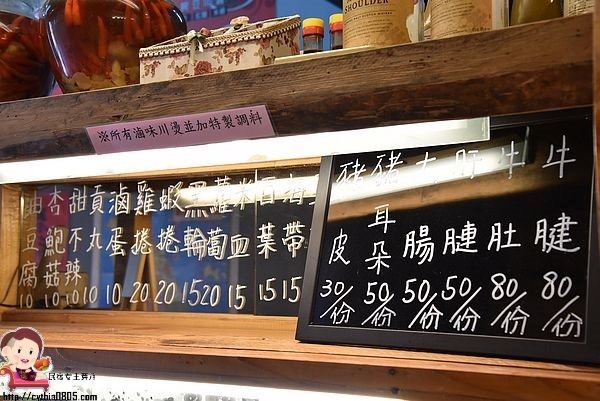 SHOULDER
※所有滷味川燙並加特製調料
油豆腐 10
杏鮑菇 10
甜不辣 10
貢丸 10
滷蛋 10
雞捲 20
蝦捲 20
黑輪 15
蘿蔔 20
米血 15
百葉 15
海帶 15
豬皮 30/份
豬耳朵 50/份
大腸 50/份
肝膤 50/份
牛肚 80/份
牛腱 80/份
民宿女王芽月
http://cythia0805.com